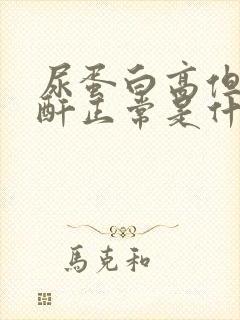 尿蛋白高但
酐正常是什
馬克和